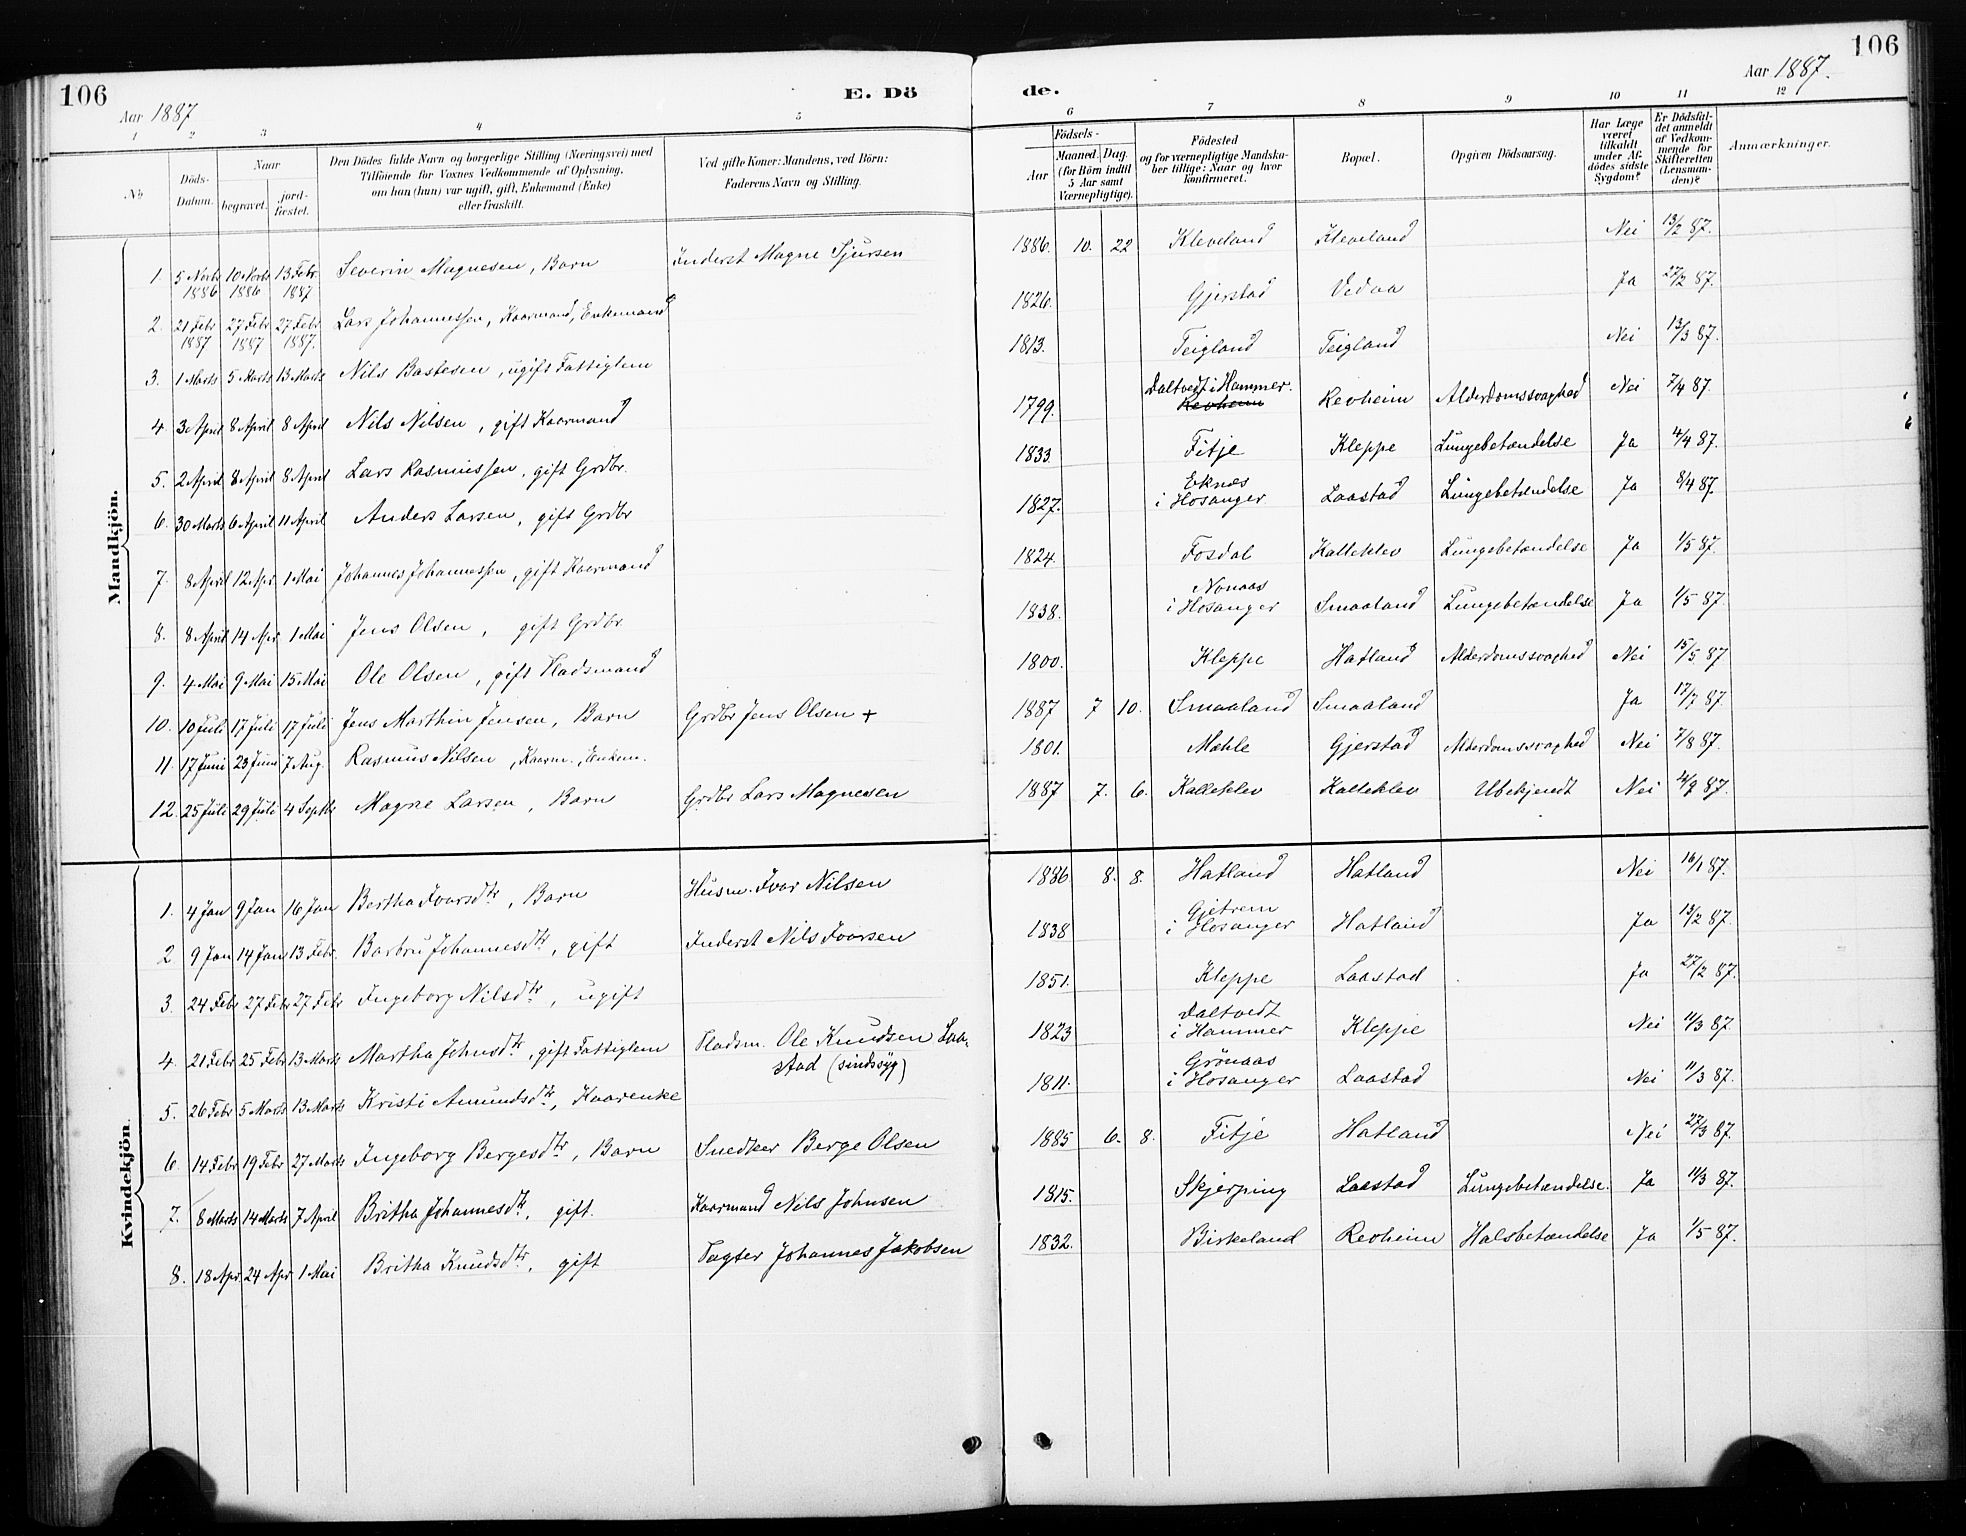 106
Aar 1887
E. Dö
1 2 3 4 5
No
Döds-Datum.
Naar
begravet.
jord-fæstet.
Den Dödes fulde Navn og borgerlige Stilling (Næringsvei) med
Tilföiende for Voxnes Vedkommende af Oplysning,
om han (hun) var ugift, gift, Enkemand (Enke)
eller fraskilt.
Ved gifte Koner: Mandens, ved Börn:
Faderens Navn og Stilling.
Mandkjön.
1. 5 Novbr 1886 10 Novbr 1886 13 Febr 1887 Severin Magnesen, Barn Inderst Magne Sjursen
2. 21 Febr 1887 27 Febr 1887 27 Febr 1887. Lars Johannessen, Kaarmand, Enkemand
3. 1 Marts 5 Marts 13 Marts Nils Bastesen, ugift Fattiglem
4. 3 April 8 April 8 April Nils Nilsen, gift Kaarmand
5. 2 April 8 April 8 April Lars Rasmussen, gift Grdbr.
6. 30 Marts 6 April 11 April Anders Larsen, gift Grdbr
7. 8 April 12 Apr 1 Mai Johannes Johannessen, gift Kaarmand
8. 8 April 14 Apr 1 Mai Jens Olsen, gift Grdbr
9. 4 Mai 9 Mai 15 Mai Ole Olsen, gift Pladsmand
10. 10 Juli 17 Juli 17 Juli Jens Marthin Jensen, Barn Grdbr Jens Olsen +
11. 17 Juni 23 Juni 7 Aug. Rasmus Nilsen, Kaarm., Enkem.
12. 25 Juli 29 Juli 4 Septbr Magne Larsen, Barn Grdbr Lars Magnesen
Kvindekjön.
1. 4 Jan 9 Jan 16 Jan Bertha Ivarsdtr, Barn Husm. Ivar Nilsen
2 9 Jan 14 Jan 13 Febr. Barbru Johannesdtr, gift Inderst Nils Ivarsen
3. 24 Febr 27 Febr 27 Febr Ingeborg Nilsdtr, ugift
4. 21 Febr 25 Febr 13 Marts Martha Johnsdtr, gift Fattiglem Pladsm. Ole Knudsen Laa-
stad (sindssyg)
5. 26 Febr 5 Marts 13 Marts Kristi Amundsdtr, Kaarenke
6. 14 Febr 19 Febr 27 Marts Ingeborg Bergesdtr, Barn Snedker Berge Olsen
7. 8 Marts 14 Marts 7 April Britha Johannesdtr, gift. Kaarmand Nils Johnsen
8. 18 Apr. 24 Apr 1 Mai Britha Knudsdtr, gift Vagter Johannes Jakobsen
106
Aar 1887.
de.
6 7 8 9 10 11 12
Födsels-
Aar
Maaned. Dag.
(for Börn indtil
5 Aar samt
Værnepligtige).
Födested
og for værnepligtige Mandska-
ber tillige: Naar og hvor
konfirmeret.
Bopæl.
Opgiven Dödsaarsag.
Har Læge
været
tilkaldt
under Af-
dödes sidste
Sygdom?
Er Dödsfal-
det anmeldt
af Vedkom-
mende for
Skifteretten
(Lensman-
den)?
Anmærkninger.
1886. 10. 22 Kleveland Kleveland Nei 13/2 87.
1826. Gjerstad Vedaa Ja 27/2 87.
1813. Teigland Teigland Nei 13/3 87.
Daltvedt i Hammer.
1799. Revheim Revheim Alderdomssvaghed Nei 7/4 87.
1833. Fitje Kleppe Lungebetændelse Ja 4/4 87.
Eknæs
1827. i Hosanger Laastad Lungebetændelse Ja 8/4 87.
1824. Fosdal Kalleklev Lungebetændelse Ja 1/5 87.
Nonaas
1838. i Hosanger Smaaland Lungebetændelse Ja 1/5 87.
1800. Kleppe Hatland Alderdomssvaghed Nei 15/5 87
1887 7 10. Smaaland Smaaland Ja 17/7 87.
1801. Mæhle Gjerstad Alderdomssvaghed Nei 7/8 87.
1887 7. 6. Kalleklev Kalleklev Ubekjendt Nei 4/9 87.
1886 8. 8. Hatland Hatland Nei 16/1 87.
Gjetrem
1838 i Hosanger Hatland Ja 13/2 87.
1851. Kleppe Laastad Ja 27/2 87.
Daltvedt
1823 i Hammer Kleppe Nei 11/3 87.
Grönaas
1811. i Hosanger Laastad Nei 11/3 87.
1885 6. 8. Fitje Hatland Nei 27/3 87.
1815. Skjerping Laastad Lungebetændelse. Ja 11/3 87.
1832. Birkeland Revheim Halsbetændelse Ja 1/5 87.